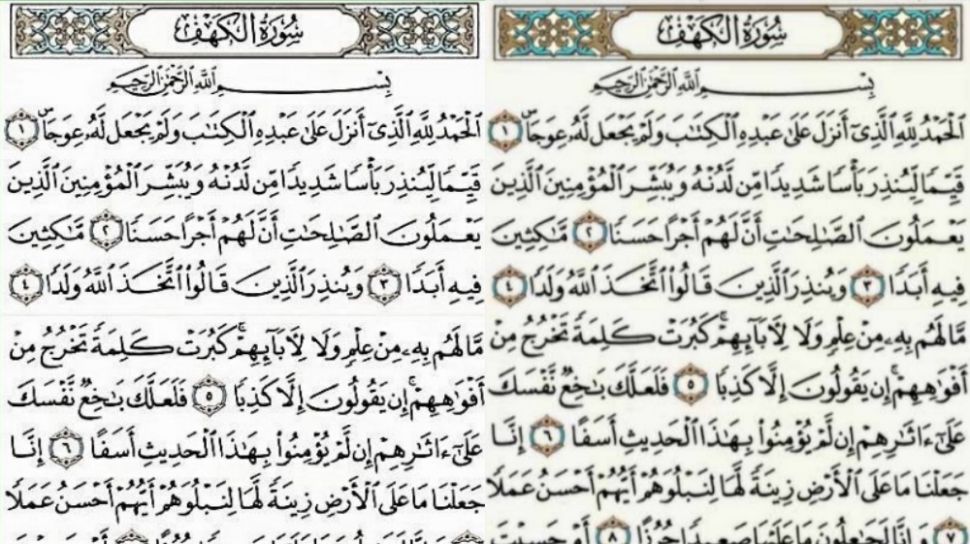 سُورَةُ الكَهْفِ
بِسْمِ اللَّهِ الرَّحْمَٰنِ الرَّحِيمِ
ٱلۡحَمۡدُ لِلَّهِ ٱلَّذِيٓ أَنزَلَ عَلَىٰ عَبۡدِهِ ٱلۡكِتَٰبَ وَلَمۡ يَجۡعَل لَّهُۥ عِوَجَاۜ ١
قَيِّمٗا لِّيُنذِرَ بَأۡسٗا شَدِيدٗا مِّن لَّدُنۡهُ وَيُبَشِّرَ ٱلۡمُؤۡمِنِينَ ٱلَّذِينَ
يَعۡمَلُونَ ٱلصَّٰلِحَٰتِ أَنَّ لَهُمۡ أَجۡرًا حَسَنٗا ٢ مَّٰكِثِينَ
فِيهِ أَبَدٗا ٣ وَيُنذِرَ ٱلَّذِينَ قَالُواْ ٱتَّخَذَ ٱللَّهُ وَلَدٗا ٤
مَّا لَهُم بِهِۦ مِنۡ عِلۡمٖ وَلَا لِأٓبَآئِهِمۡۚ كَبُرَتۡ كَلِمَةٗ تَخۡرُجُ مِنۡ
أَفۡوَٰهِهِمۡۚ إِن يَقُولُونَ إِلَّا كَذِبٗا ٥ فَلَعَلَّكَ بَٰخِعٞ نَّفۡسَكَ
عَلَىٰٓ ءَاثَٰرِهِمۡ إِن لَّمۡ يُؤۡمِنُواْ بِهَٰذَا ٱلۡحَدِيثِ أَسَفًا ٦ إِنَّا
جَعَلۡنَا مَا عَلَى ٱلۡأَرۡضِ زِينَةٗ لَّهَا لِنَبۡلُوَهُمۡ أَيُّهُمۡ أَحۡسَنُ عَمَلٗا
٧ وَإِنَّا لَجَٰعِلُونَ مَا عَلَيۡهَا صَعِيدٗا جُرُزًا ٨ أَمۡ حَسِبۡتَ
سُورَةُ الكَهْفِ
بِسْمِ اللَّهِ الرَّحْمَٰنِ الرَّحِيمِ
ٱلۡحَمۡدُ لِلَّهِ ٱلَّذِيٓ أَنزَلَ عَلَىٰ عَبۡدِهِ ٱلۡكِتَٰبَ وَلَمۡ يَجۡعَل لَّهُۥ عِوَجَاۜ ١
قَيِّمٗا لِّيُنذِرَ بَأۡسٗا شَدِيدٗا مِّن لَّدُنۡهُ وَيُبَشِّرَ ٱلۡمُؤۡمِنِينَ ٱلَّذِينَ
يَعۡمَلُونَ ٱلصَّٰلِحَٰتِ أَنَّ لَهُمۡ أَجۡرًا حَسَنٗا ٢ مَّٰكِثِينَ
فِيهِ أَبَدٗا ٣ وَيُنذِرَ ٱلَّذِينَ قَالُواْ ٱتَّخَذَ ٱللَّهُ وَلَدٗا ٤
مَّا لَهُم بِهِۦ مِنۡ عِلۡمٖ وَلَا لِأٓبَآئِهِمۡۚ كَبُرَتۡ كَلِمَةٗ تَخۡرُجُ مِنۡ
أَفۡوَٰهِهِمۡۚ إِن يَقُولُونَ إِلَّا كَذِبٗا ٥ فَلَعَلَّكَ بَٰخِعٞ نَّفۡسَكَ
عَلَىٰٓ ءَاثَٰرِهِمۡ إِن لَّمۡ يُؤۡمِنُواْ بِهَٰذَا ٱلۡحَدِيثِ أَسَفًا ٦ إِنَّا
جَعَلۡنَا مَا عَلَى ٱلۡأَرۡضِ زِينَةٗ لَّهَا لِنَبۡلُوَهُمۡ أَيُّهُمۡ أَحۡسَنُ عَمَلٗا